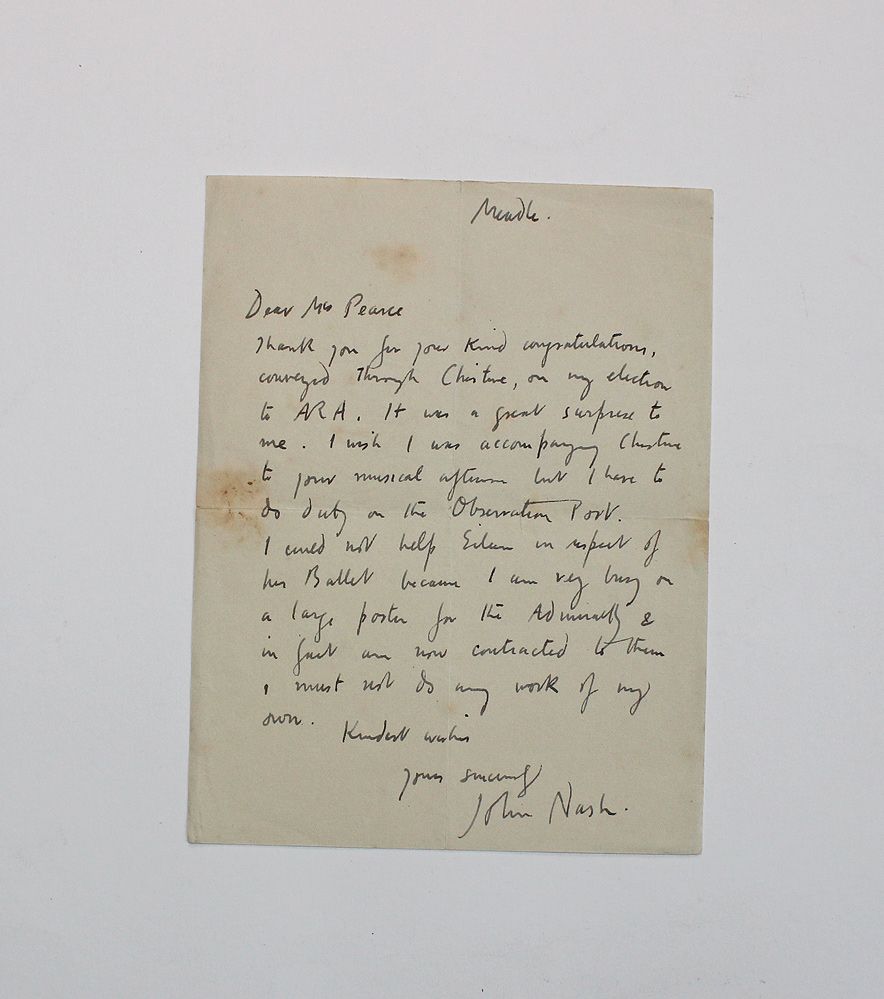 Meadle.
Dear Mrs Pearce
Thank you for your kind congratulations,
conveyed through Christine, on my election
to ARA. It was a great surprise to
me. I wish I was accompanying Christine
to your musical afternoon but I have to
do duty on the Observation Post.
I could not help Eileen in respect of
her Ballet because I am very busy on
a large poster for the Admiralty &
in fact am now contracted to them
& must not do any work of my
own.
Kindest wishes
yours sincerely
John Nash.